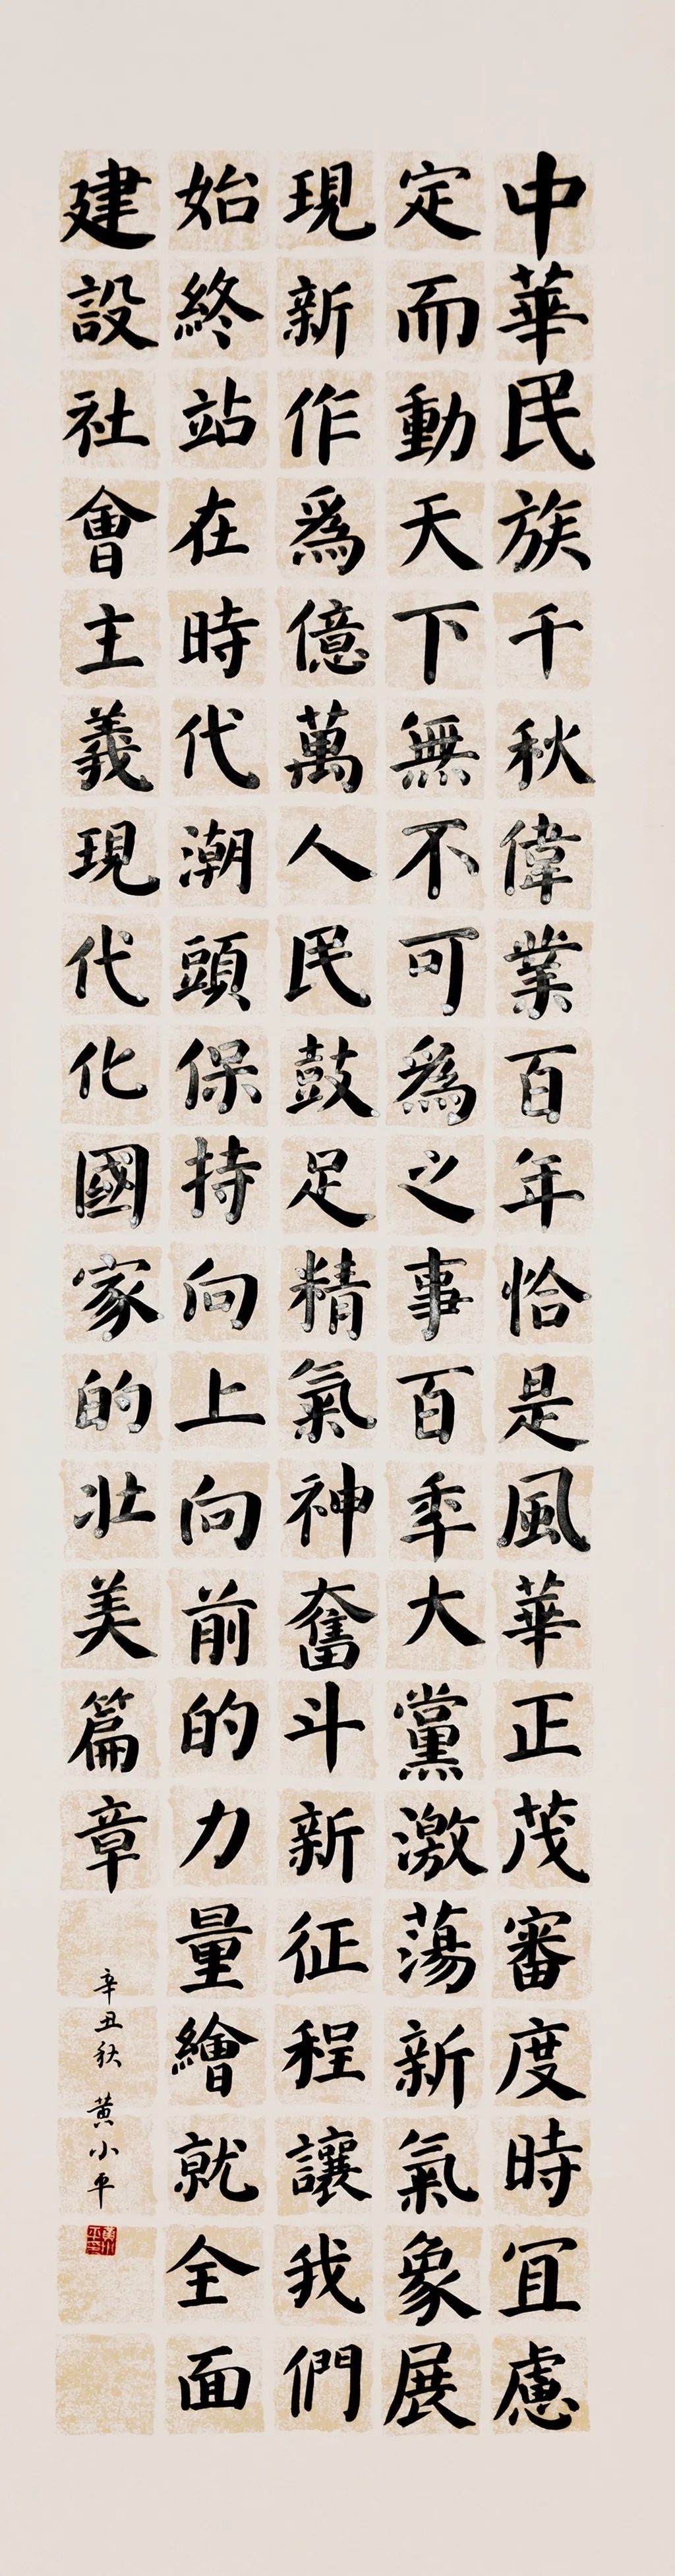 中華民族千秋偉業百年恰是風華正茂審度時宜慮
定而動天下無不可爲之事百年大黨激蕩新氣象展
現新作爲億萬人民鼓足精氣神奮斗新征程讓我們
始終站在時代潮頭保持向上向前的力量繪就全面
建設社會主義現代化國家的壯美篇章
辛丑秋 黄小平